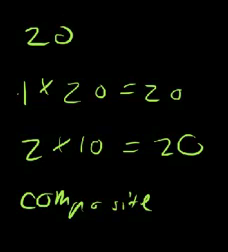 20
1×20=20
2×10=20
composite